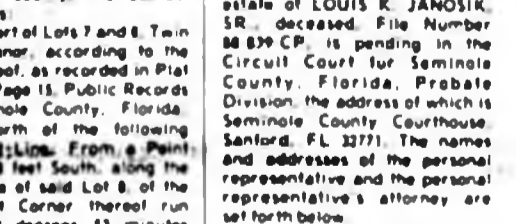 rt of Lots 7 and 8, Twin
nor, according to the
of, as recorded in Plat
age 15, Public Records
nole County, Florida.
rth of the following
Line. From a Point
feet South, along the
of said Lot 8, of the
Corner thereof run
minutes
estate of LOUIS K. JANOSIK,
SR., deceased, File Number
CP, is pending in the
Circuit Court for Seminole
County, Florida, Probate
Division, the address of which is
Seminole County Courthouse,
Sanford, FL 32771. The names
and addresses of the personal
representative and the personal
representative's attorney are
set forth below